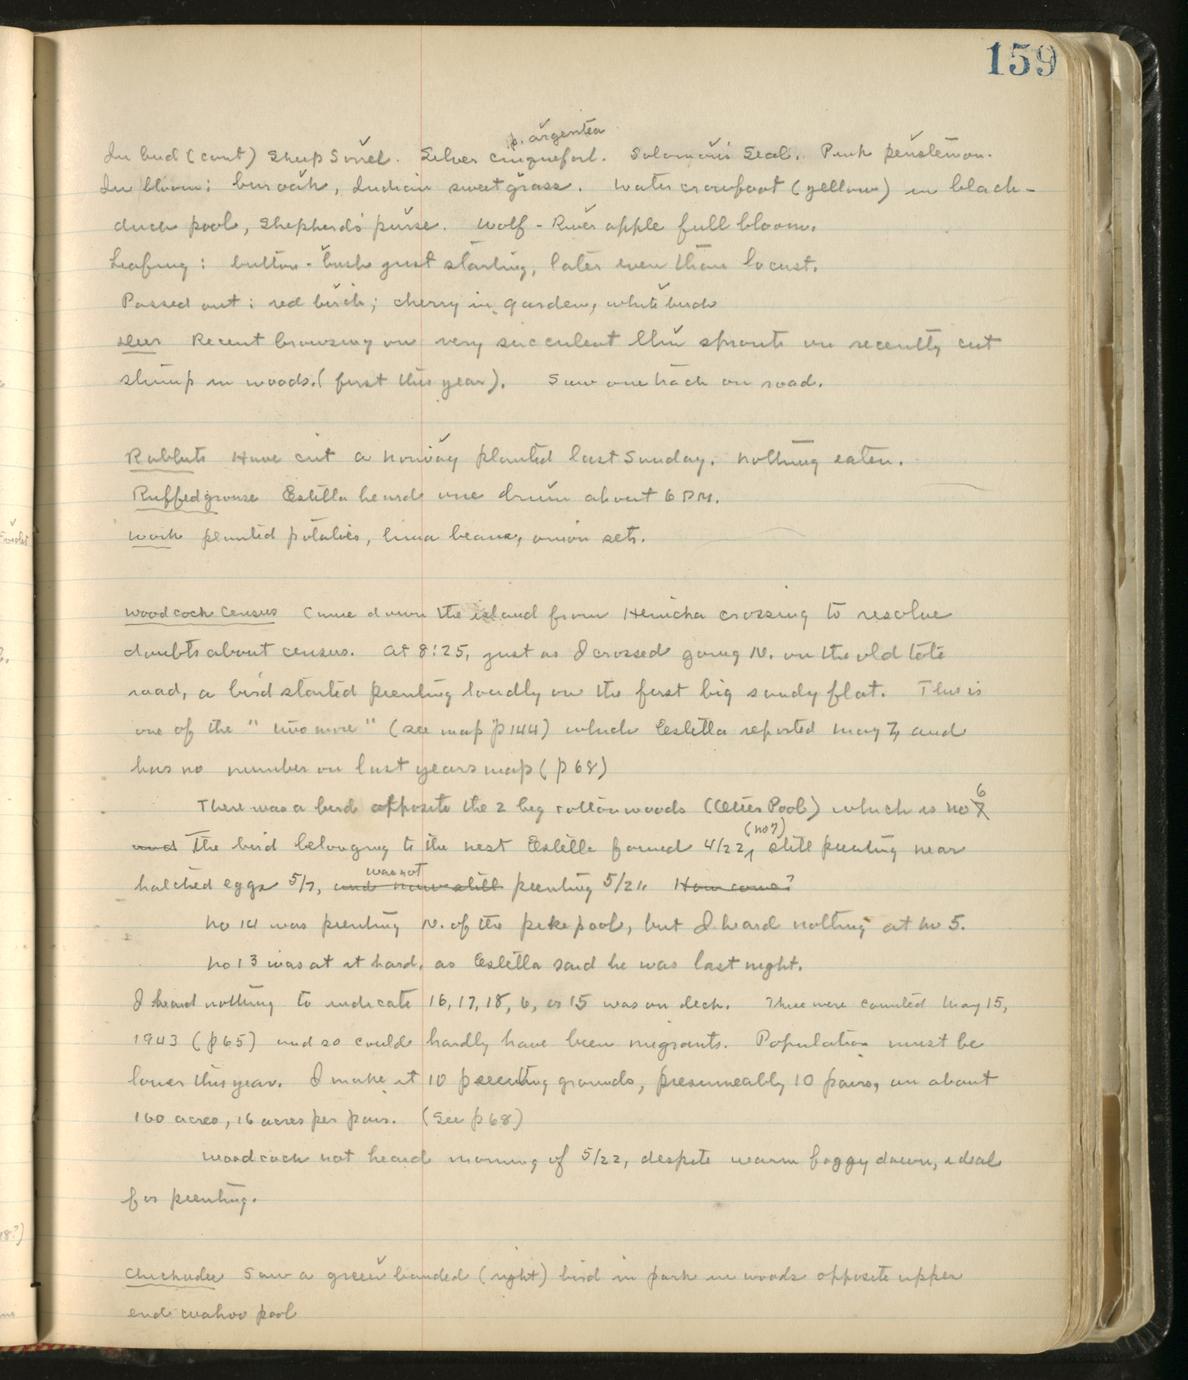 159
P. argentea
In bud (cont) Sheep Sorrel. Silver cinquefoil. Solomon's Seal. Pink penstemon.
In bloom: bur oak, Indian sweetgrass. Water crowfoot (yellow) in black-
duck pool, Shepherd's purse. Wolf-River apple full bloom.
Leafing: button-bush just starting, later even than locust.
Passed out: red birch; cherry in garden, white birch
Deer Recent browsing on very succulent Elm sprouts on recently cut
stump in woods. (first this year). Saw one track on road.
Rabbits Have cut a Norway planted last Sunday. Nothing eaten.
Ruffed grouse Estella heard one drum about 6 PM.
Work planted potatoes, lima beans, onion sets.
Woodcock Census Came down the island from crossing to resolve
doubts about census. At 8:25, just as I crossed going N. on the old tote
road, a bird started peenting loudly on the first big sandy flat. This is
one of the "two more" (see map p 144) which Estella reported May 7, and
has no number on last years map (p 68)
There was a bird opposite the 2 big cottonwoods (Otter Pool) which is no 7 6
and The bird belonging to the nest Estella found 4/22, (no 7) still peenting near
hatched eggs 5/7, and now still was not peenting 5/21. How come?
No 14 was peenting N. of the pike pool, but I heard nothing at no 5.
No 13 was at it hard, as Estella said he was last night.
I heard nothing to indicate 16, 17, 18, 6, or 15 was on deck. These were counted May 15,
1943 (p 65) and so could hardly have been migrants. Population must be
lower this year. I make it 10 peenting grounds, presumeably 10 pairs, on about
160 acres, 16 acres per pair. (See p 68)
Woodcock not heard morning of 5/22, despite warm foggy dawn, ideal
for peenting.
Chickadee Saw a green banded (right) bird in park in woods opposite upper
end wahoo pool
18?)